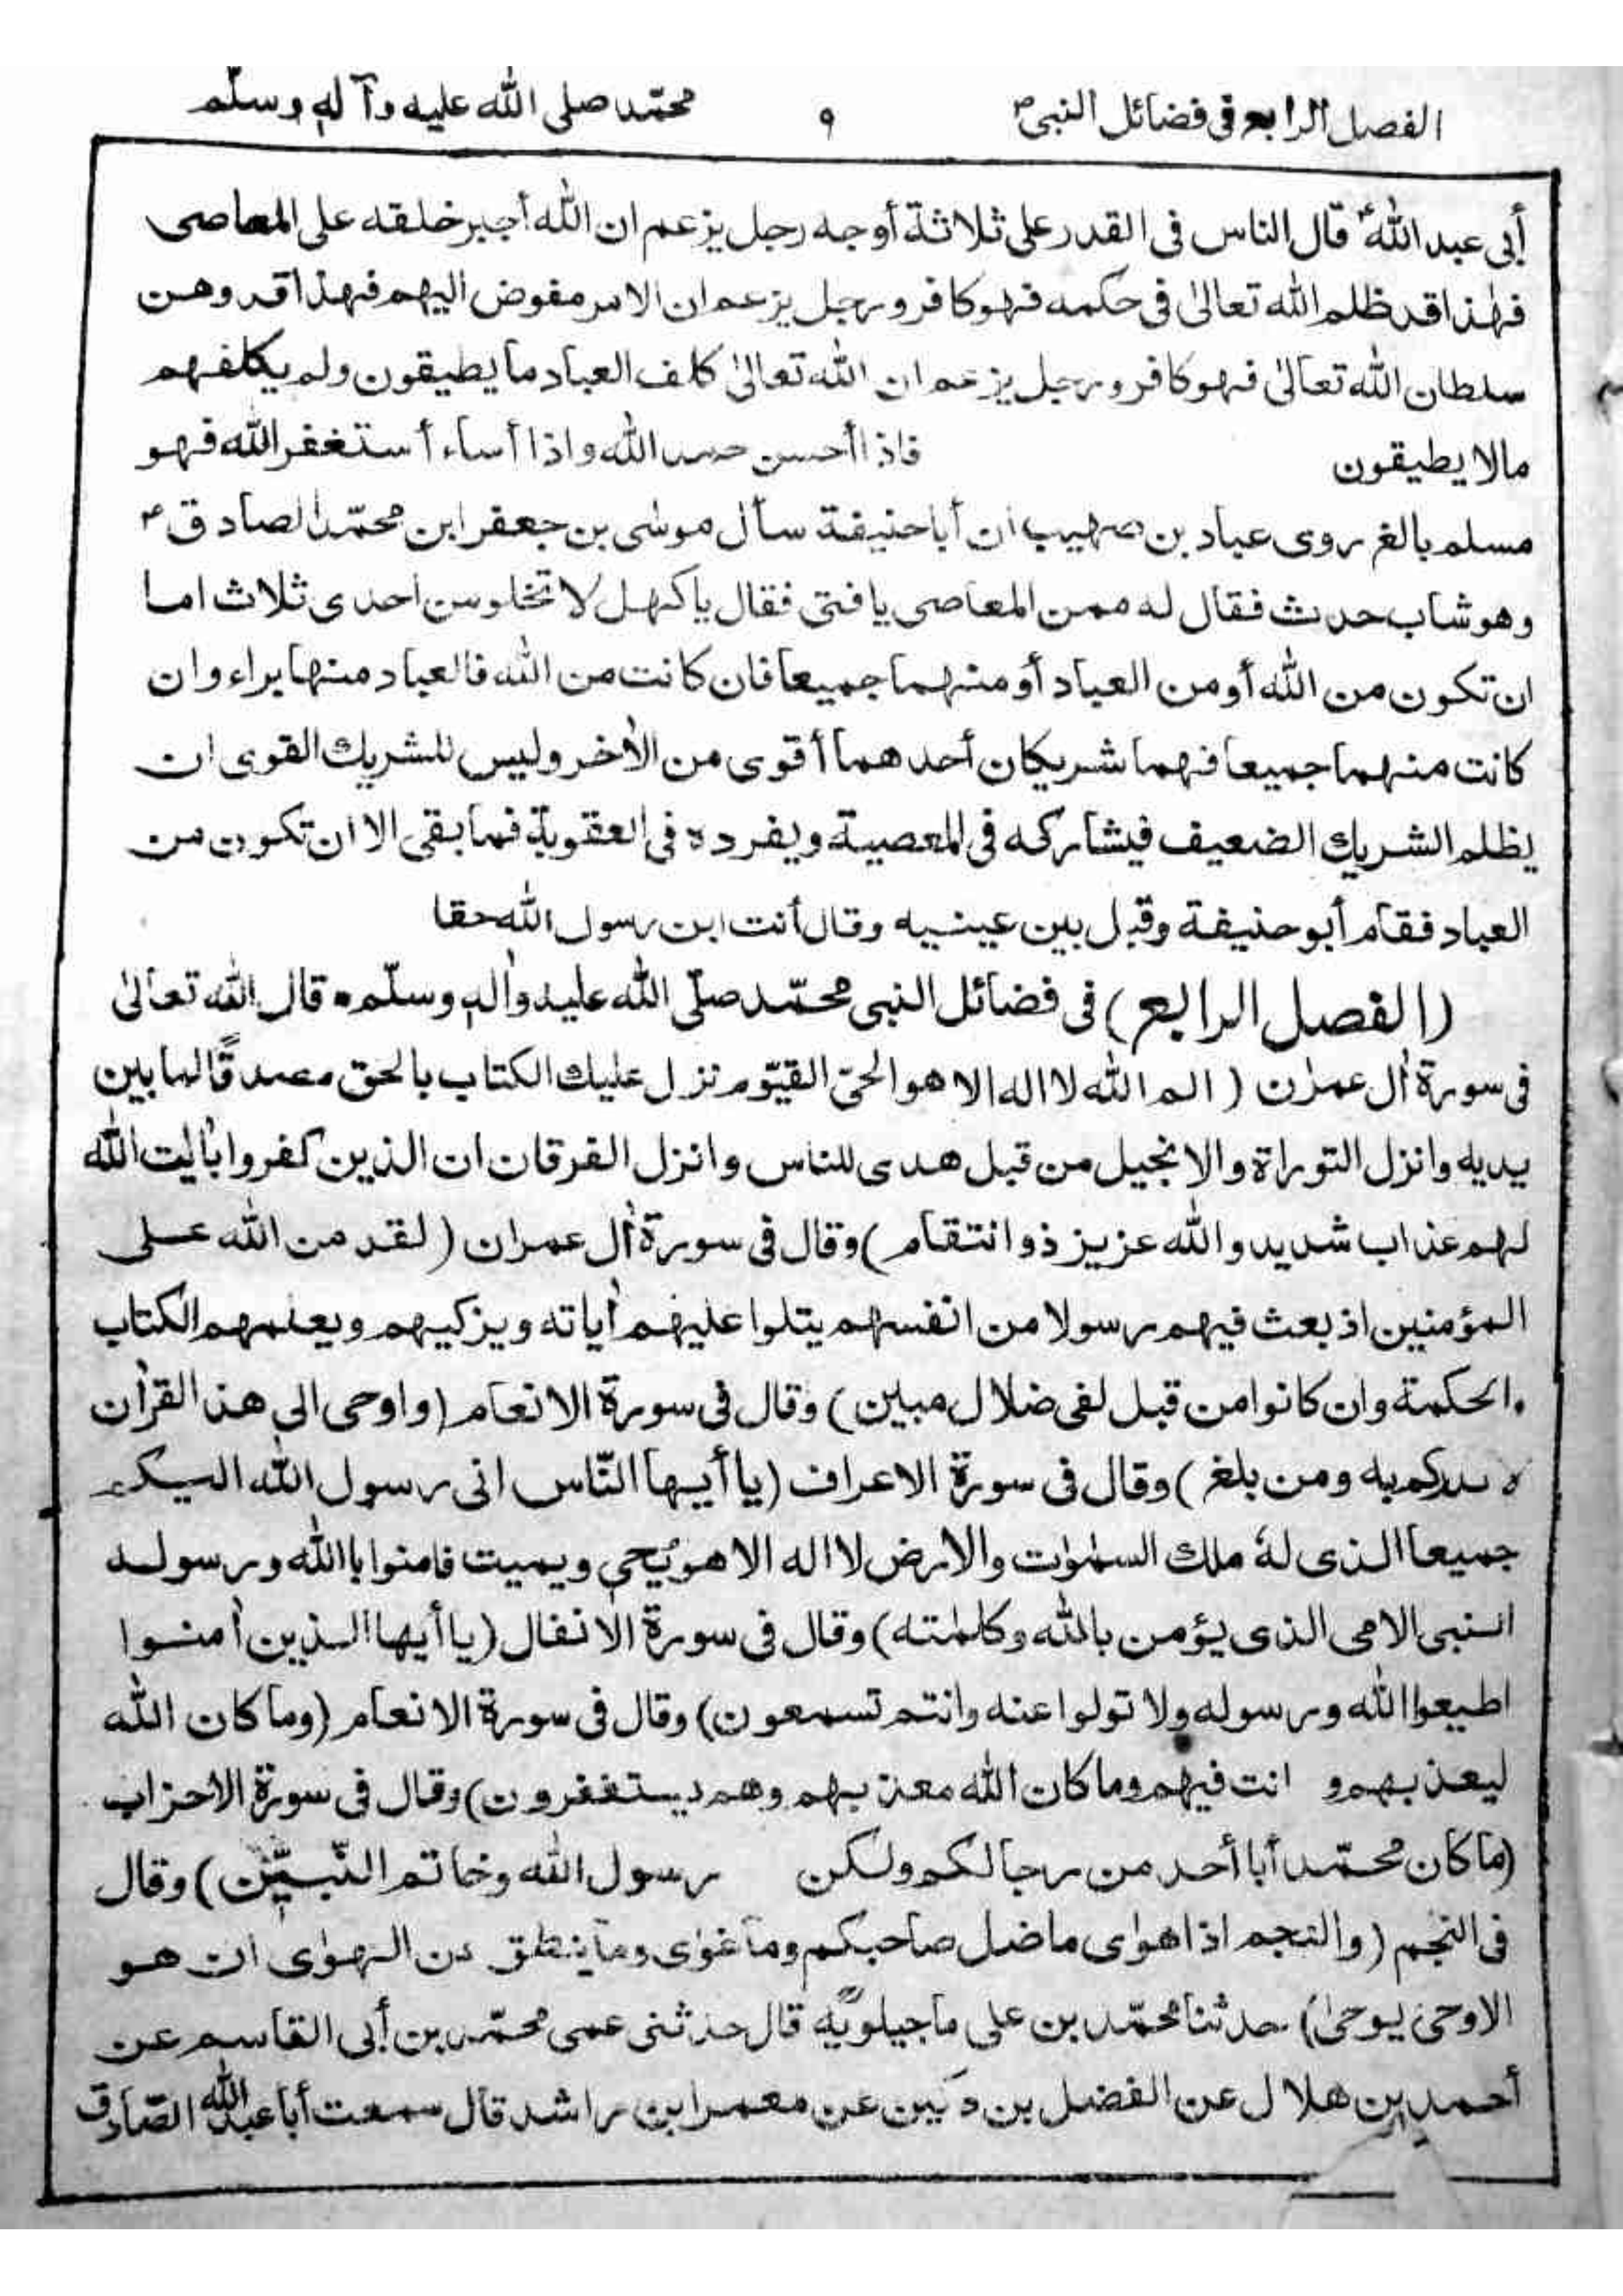 الفصل الرابع فی فضائل النبی ٩ محمّد صلی اللّٰه علیه وآله وسلّم
أبی عبد اللّٰه قال الناس فی القدر علی ثلاثة أوجه رجل یزعم ان اللّٰه أجبر خلقه علی المعاصی
فهٰذا قد ظلم اللّٰه تعالیٰ فی حکمه فهو کافر ورجل یزعم ان الامر مفوض الیهم فهذا قد وهن
سلطان اللّٰه تعالیٰ فهو کافر ورجل یزعم ان اللّٰه تعالیٰ کلف العباد ما یطیقون ولم یکلفهم
مالا یطیقون فاذا أحسن حمد اللّٰه واذا أساء أستغفر اللّٰه فهو
مسلم بالغ روی عباد بن صهیب ان أبا حنیفة سأل موسٰی بن جعفر ابن محمّد الصادق
وهو شاب حدث فقال له ممن المعاصی یا فتی فقال یا کهل لا تخلو من احدی ثلاث اما
ان تکون من اللّٰه أو من العباد أو منهما جمیعا فان کانت من اللّٰه فالعباد منها براء وان
کانت منهما جمیعا فهما شریکان أحدهما أقوی من الأخر ولیس للشریك القوی ان
یظلم الشریك الضعیف فیشارکه فی المعصیة ویفرده فی العقوبة فما بقی الا ان تکون من
العباد فقام أبو حنیفة وقبل بین عینیه وقال أنت ابن رسول اللّٰه حقا
(الفصل الرابع) فی فضائل النبی محمّد صلّی اللّٰه علیه واٰله وسلّم • قال اللّٰه تعالیٰ
فی سورة اٰل عمرٰن (الم اللّٰه لا اله الا هو الحیّ القیّوم نزل علیك الکتاب بالحق مصدقًا لما بین
یدیه وانزل التوراة والانجیل من قبل هدی للناس وانزل الفرقان ان الذین کفروا باٰیٰت اللّٰه
لهم عذاب شدید واللّٰه عزیز ذو انتقام) وقال فی سورة اٰل عمران (لقد من اللّٰه علی
المؤمنین اذ بعث فیهم رسولا من انفسهم یتلوا علیهم اٰیاته ویزکیهم ویعلمهم الکتاب
والحکمة وان کانوا من قبل لفی ضلال مبین) وقال فی سورة الانعام (واوحی الی هذا القراٰن
به ومن بلغ) وقال فی سورة الاعراف (یا أیها النّاس انی رسول اللّٰه الیکم
جمیعا الذی لهٗ ملك السمٰوٰت والارض لا اله الا هو یُحیٖ ویمیت فامنوا باللّٰه ورسوله
النبی الامی الذی یؤمن باللّٰه وکلمٰته) وقال فی سورة الانفال (یا أیها الذین اٰمنوا
اطیعوا اللّٰه ورسوله ولا تولوا عنه وانتم تسمعون) وقال فی سورة الانعام (وما کان اللّٰه
لیعذبهم و انت فیهم وما کان اللّٰه معذبهم وهم یستغفرون) وقال فی سورة الاحزاب
(ما کان محمّد أبا أحد من رجالکم ولکن رسول اللّٰه وخاتم النّبیّن) وقال
فی النجم (والنجم اذا هوٰی ما ضل صاحبکم وما غوٰی وما ینطق عن الهوٰی ان هو
الا وحی یوحیٰ) حدثنا محمّد بن علی ماجیلویه قال حدثنی عمی محمّد بن أبی القاسم عن
أحمد بن هلال عن الفضل بن دکین عن معمر ابن راشد قال سمعت أبا عبد اللّٰه الصّادق